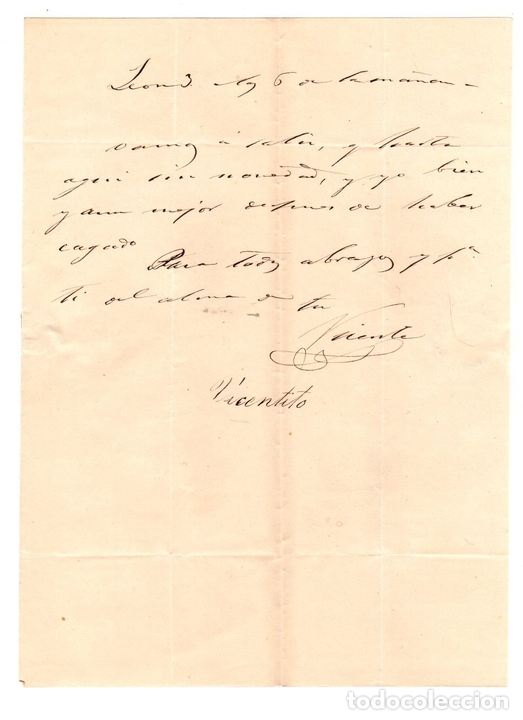 Leon 3 las 6 de la mañana
Vamos á salir, y hasta
aqui sin novedad, y yo bien
y aun mejor despues de haber
cagado
Para todos abrazos y pª
ti el alma de tu
Vicente
Vicentito
todocoleccion